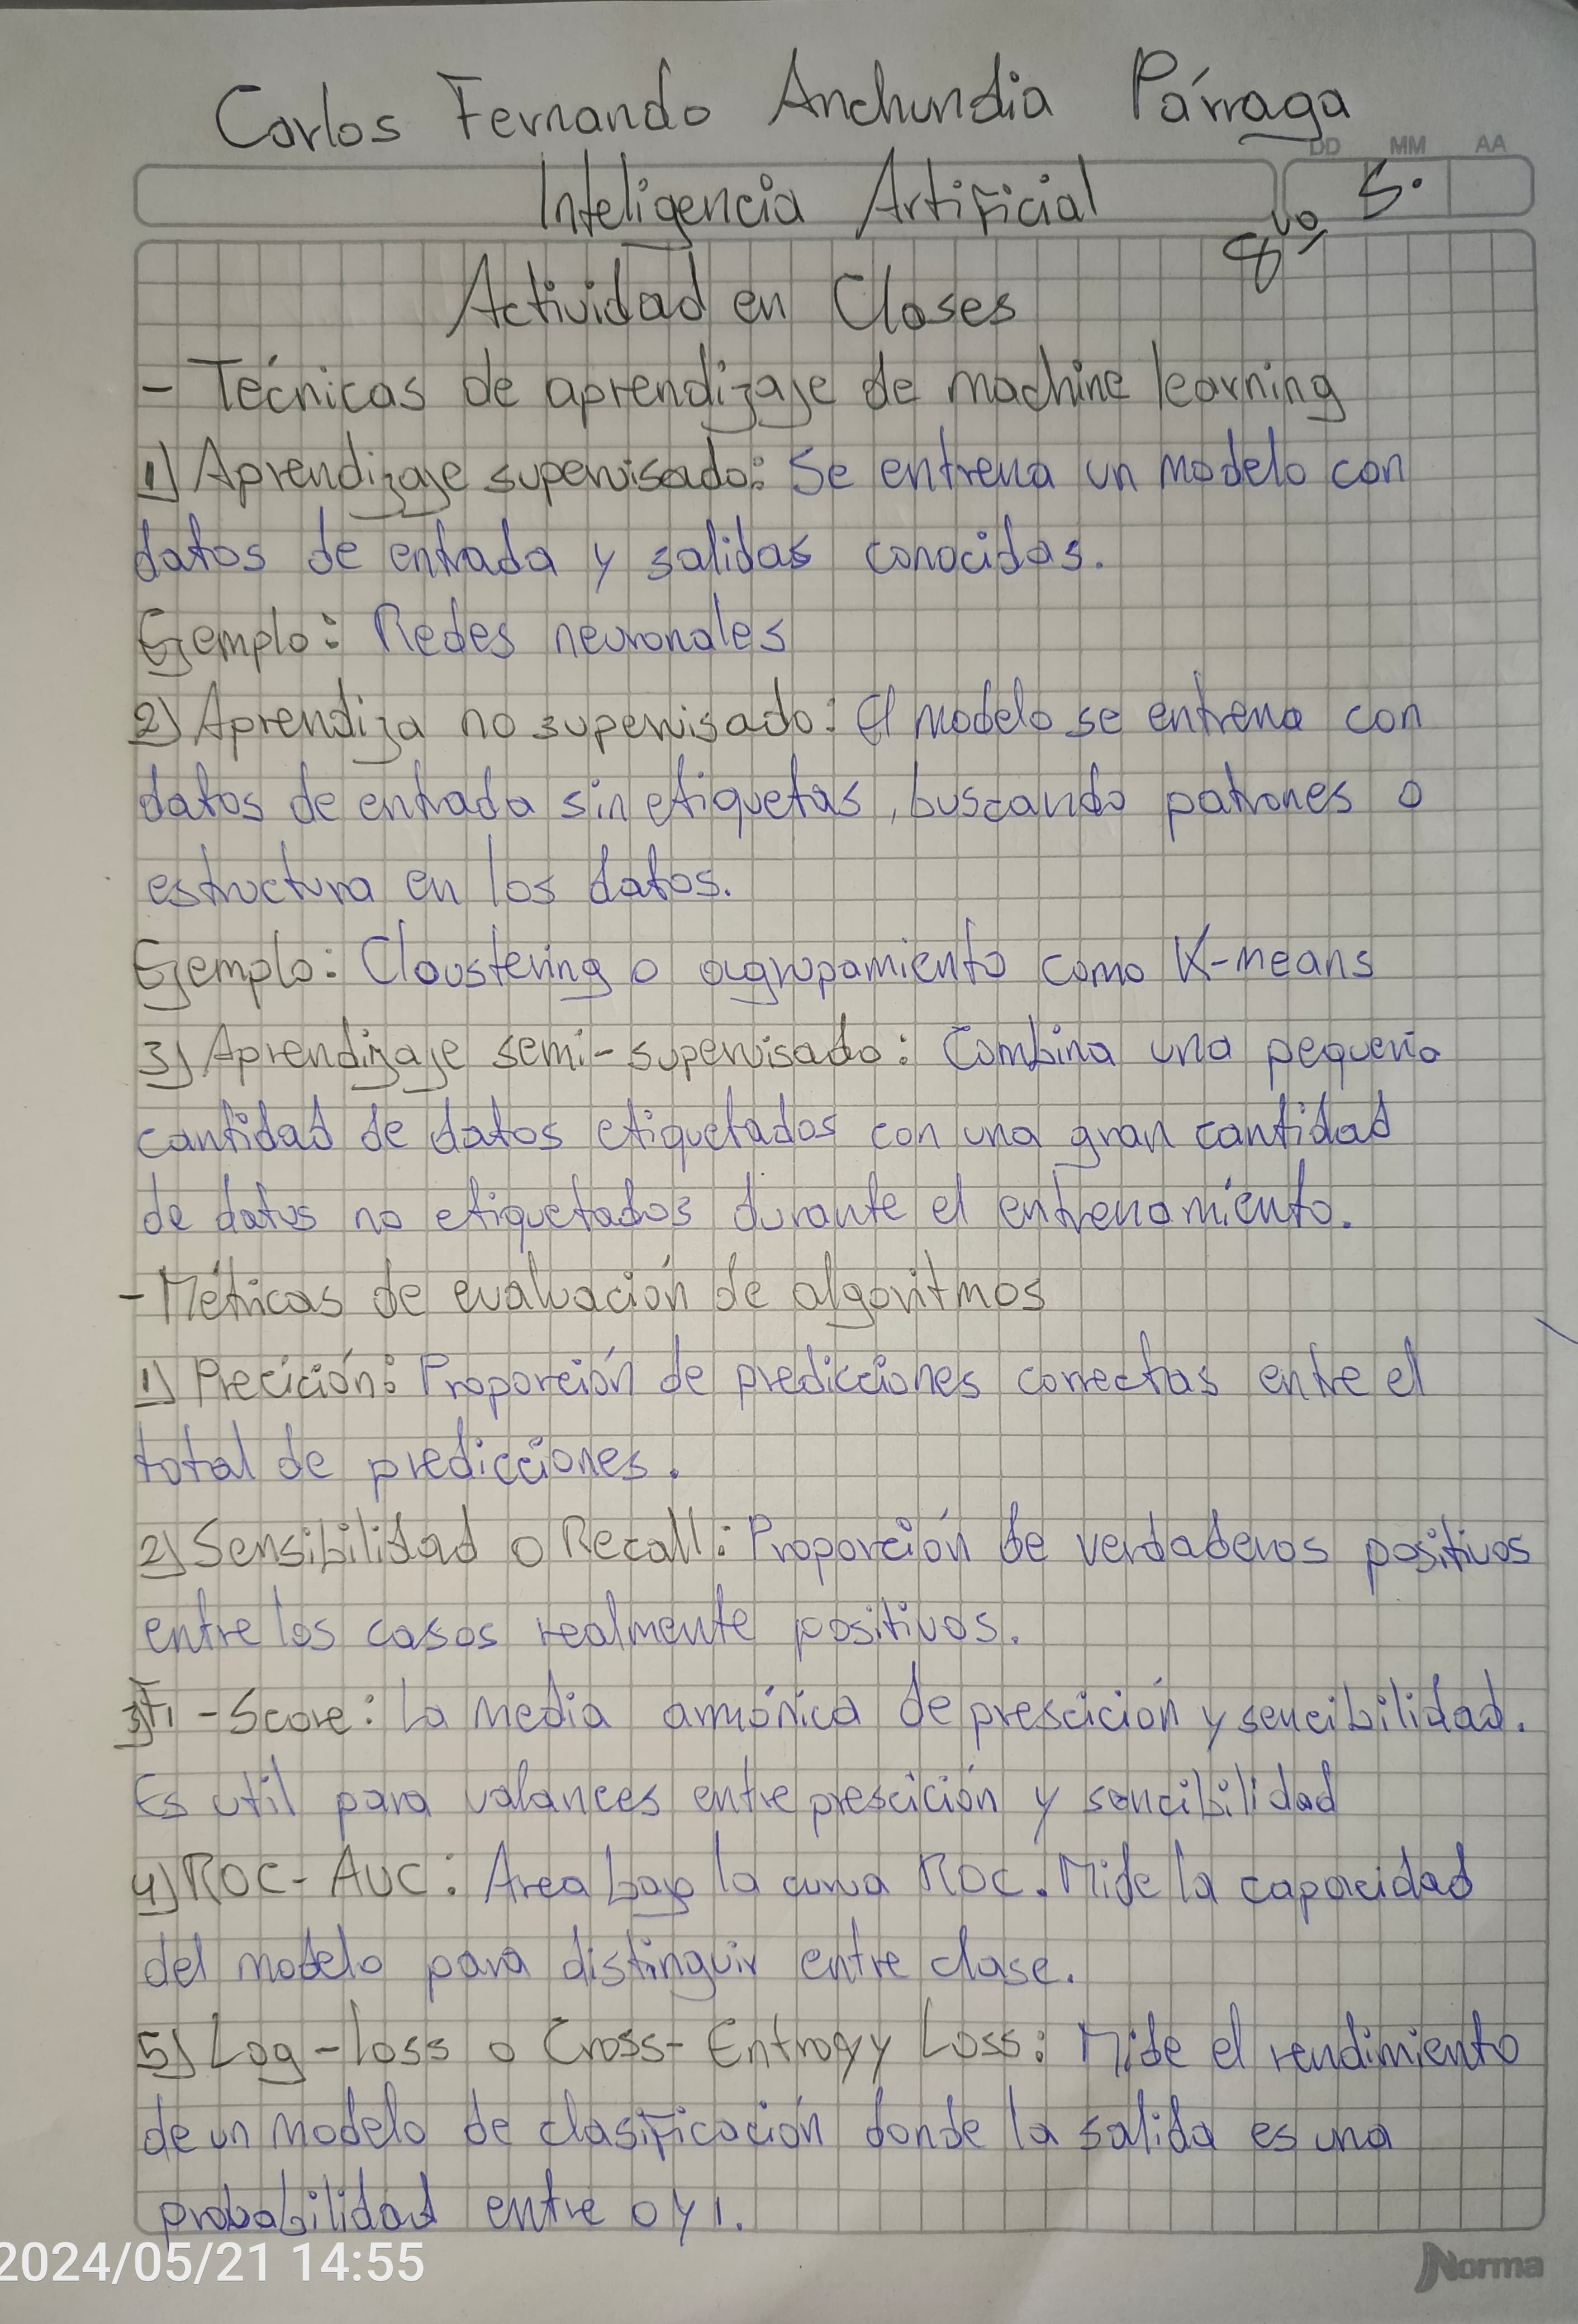 Carlos Fernando Anchundia Párraga
DD MM AA
Inteligencia Artificial
8vo S.
Actividad en Clases
- Técnicas de aprendizaje de machine learning
1) Aprendizaje supervisado: Se entrena un modelo con
datos de entrada y salidas conocidas.
Ejemplo: Redes neuronales
2) Aprendiza no supervisado: El modelo se entrena con
datos de entrada sin etiquetas, buscando patrones o
estructura en los datos.
Ejemplo: Cloustering o agrupamiento como K-means
3) Aprendizaje semi-supervisado: Combina una pequeña
cantidad de datos etiquetados con una gran cantidad
de datos no etiquetados durante el entrenamiento.
- Métricas de evaluación de algoritmos
1) Precición: Proporción de predicciones correctas entre el
total de predicciones.
2) Sensibilidad o Recall: Proporción de verdaderos positivos
entre los casos realmente positivos.
3) F1 - Score: La media armónica de prescición y sencibilidad.
Es util para valances entre prescición y sencibilidad
4) ROC - AUC: Area bajo la curva ROC. Mide la capacidad
del modelo para distinguir entre clase.
5) Log - loss o Cross - Entropy Loss: Mide el rendimiento
de un modelo de clasificación donde la salida es una
probabilidad entre 0 y 1.
2024/05/21 14:55
Norma